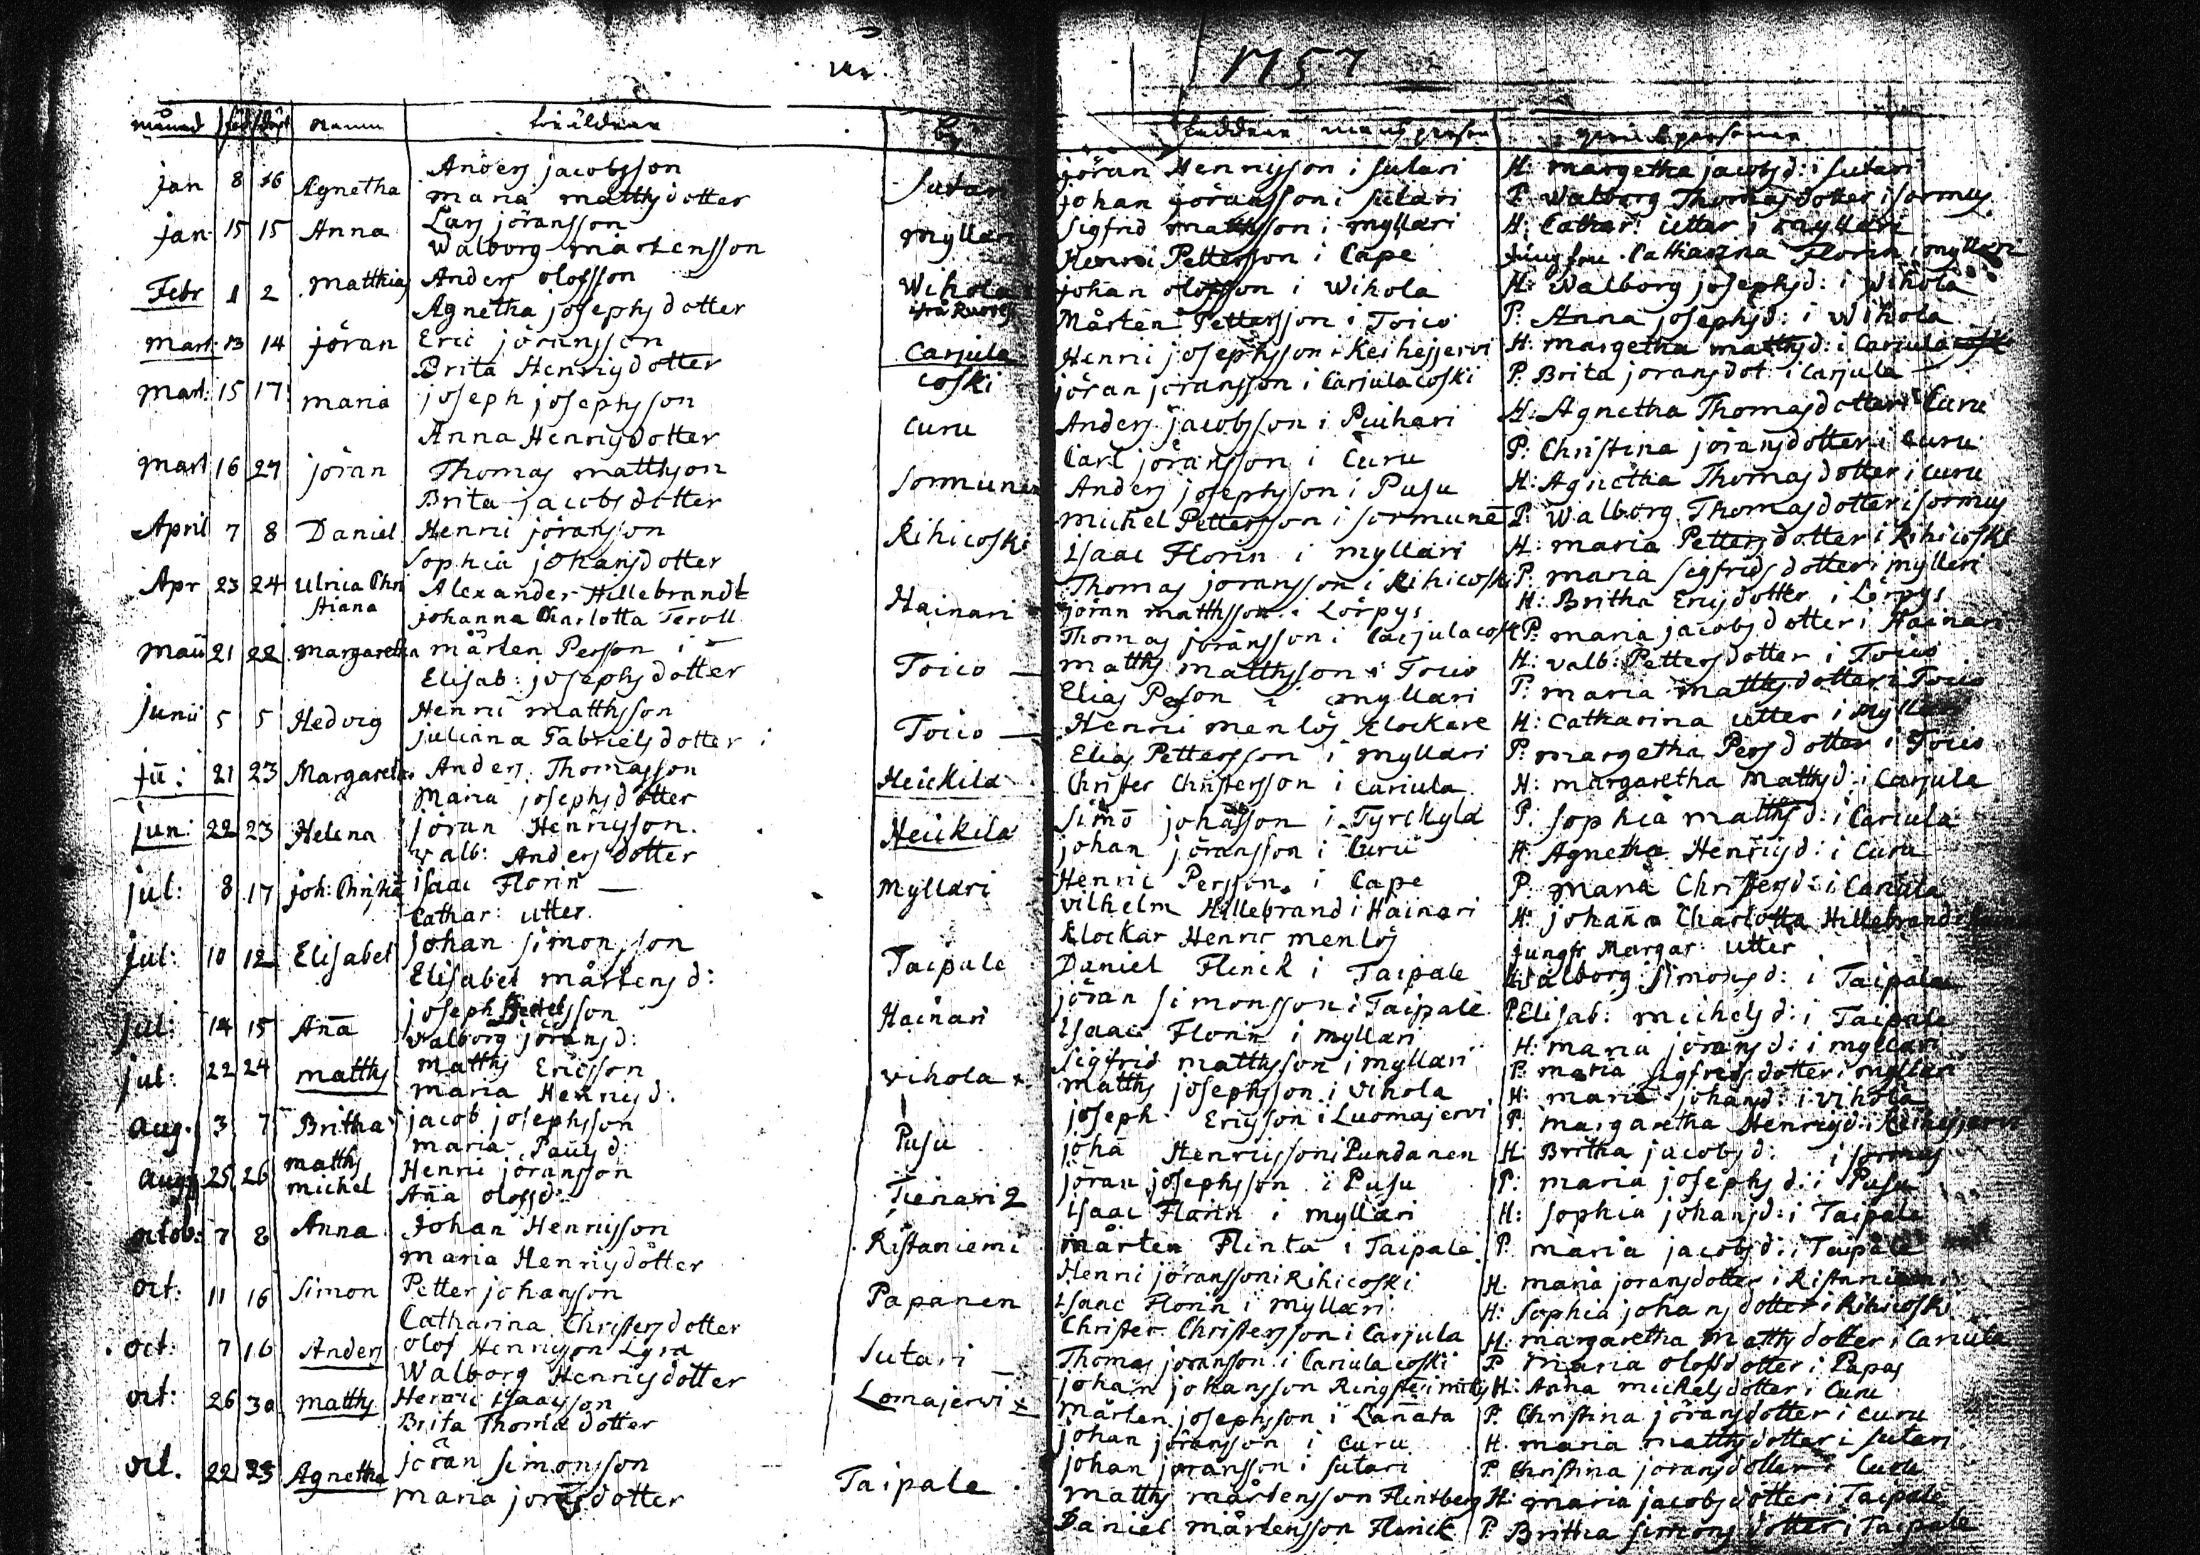 1757
månad född döpt namn föräldrar by faddrar mans person qvins personer
jan 8 16 Agnetha Anders jacobsson Sutari jöran Henricsson i Sutari H: margetha jacobsd: i Sutari
maria matthsdotter johan jöransson i Sutari P. Walborg Thomasdotter i Sormus
jan 15 15 Anna Lars jöransson myllari Sigfrid mattsson i myllari H: Cathar: Utter i myllari
Walborg mårtensson Henric Pettersson i Cape jungfru Catharina Florin i myllari
Febr 1 2 Matthias Anders olofsson Wihola johan olofsson i Wihola H: Walborg josephsd: i Wihola
Agnetha josephsdotter Mårten Pettersson i Toico P. Anna josephsd: i Wihola
Mart: 13 14 jöran Eric jöransson Carjula Henric josephsson i Keihejervi H: margetha matthsd: i Cariula
Brita Henricsdotter coski jöran jöransson i Carjulacoski P. Brita joransdot: i Carjula
Mart: 15 17 maria joseph josephsson Curu Anders jacobsson i Piuhari H: Agnetha Thomasdotter i Curu
Anna Henricsdotter Carl jöransson i Curu P: Christina jöransdotter i Curu
Mart 16 27 jöran Thomas matthson Sormunen Anders josephsson i Pusu H: Agnetha Thomasdotter i Curu
Brita jacobsdotter michel Pettersson i Sormunē P: Walborg Thomasdotter i Sormus
April 7 8 Daniel Henric jöranson Rihicoski Isaac Florin i myllari H: maria Pettersdotter i Rihicoski
Sophia johansdotter Thomas joransson i Rihicoski P. maria Sigfridsdotter i mylleri
Apr 23 24 Ulrica Chri Alexander Hillebrandt Hainari jöran matthsson i Lörpys H: Britha Ericsdotter i Lörpys
stiana johanna Charlotta Teroll Thomas joransson i Carjulacosk P: maria jacobsdotter i Hainari
maii 21 22 margaretha mårten Person i Toico matths matthsson i Toico H: Valb: Pettersdotter i Toico
Elisab: josephsdotter Elias Peson i myllari P: maria matthsdotter i Toico
junii 5 5 Hedvig Henric matthsson Toico Henric menlös Klockare H: Catharina Utter i myllari
juliana Gabrielsdotter Elias Pettersson i myllari P. margetha Persdotter i Toico
ju: 21 23 Margareta Anders Thomasson Heickila Christer Christersson i Cariula H: margaretha Matthsd: i Carjula
Maria josephsdotter Simō johāsson i Tyrckylä P. Sophia matthsd: i Cariula
jun: 22 23 Helena jöran Henricsson. Heickila johan jöransson i Curu H: Agnetha Henricsd: i Curu
Valb: Andersdotter Henric Persson i Cape P. Maria Christersd: i Cariula
jul: 8 17 joh: Christia isaac Florin myllari Vilhelm Hillebrand i Hainari H: johanna Charlotta Hillebrand
Cathar: utter. Klockar Henric menlös jungfr Margar: utter
jul: 10 12 Elisabet Johan Simonsson Taipale Daniel Flinck i Taipale H: Walborg Simonsd: i Taipale
Elisabet mårtensd: jöran Simonsson i Taipale P. Elisab: michelsd: i Taipale
jul: 14 15 Aña joseph Hainari Isaac Florin i myllari H: maria jöransd: i myllari
Valborg jöransd: Sigfrid matthsson i myllari P: maria Sigfridsdotter i myllari
jul: 22 24 matths matths Ericsson Vihola matths josephsson i Vihola H: maria johansd: i Vihola
maria Henricsd. joseph Ericsson i Luomajervi P: margaretha Henricsd: i Keihejervi
aug. 3 7 Britha jacob josephsson Pusu johā Henricsson i Pundanen H: Britha jacobsd: i Sormus
maria Paulsd: jöran josephsson i Pusu P: maria josephsd: i Pusu
aug: 25 26 matths michel Henric jöransson Tienari 2 Isaac Florin i myllari H: Sophia johansd: i Taipale
Aña olofsd: mårten Flinta i Taipale P. maria jacobsd: i Taipale
octob: 7 8 Anna Johan Henricsson Ristaniemi Henric jöransson i Rihicoski H. maria joransdotter i Ristaniemi
maria Henricsdotter Isaac Florin i myllari H: Sophia johansdotter i Rihicoski
oct: 11 16 Simon Petter johanson Papanen Christer Christersson i Carjula H: margaretha Matthsdotter i Cariula
Catharina Christersdotter Thomas joranson i Cariulacoski P. Maria olofsdotter i Papas
oct: 7 16 Anders olof Henricson Lyra Sutari johan johansson Ring H: Anna mickelsdotter i Curu
Walborg Henricsdotter mårten josephsson i Lañata P. Christina jöransdotter i Curu
oct: 26 30 matths Henric Isaacsson Lomajervi johan jöranson i Curu H. maria matthsdotter i Sutari
Brita Thomadotter johan joransson i Sutari P. Christina joransdotter i Curu
oct. 22 23 Agnetha jöran Simonsson Taipale matths mårtensson Flintberg H: maria jacobsdotter i Taipale
maria joransdotter Daniel mårtensson Flinck P. Britha Simonsdotter i Taipale